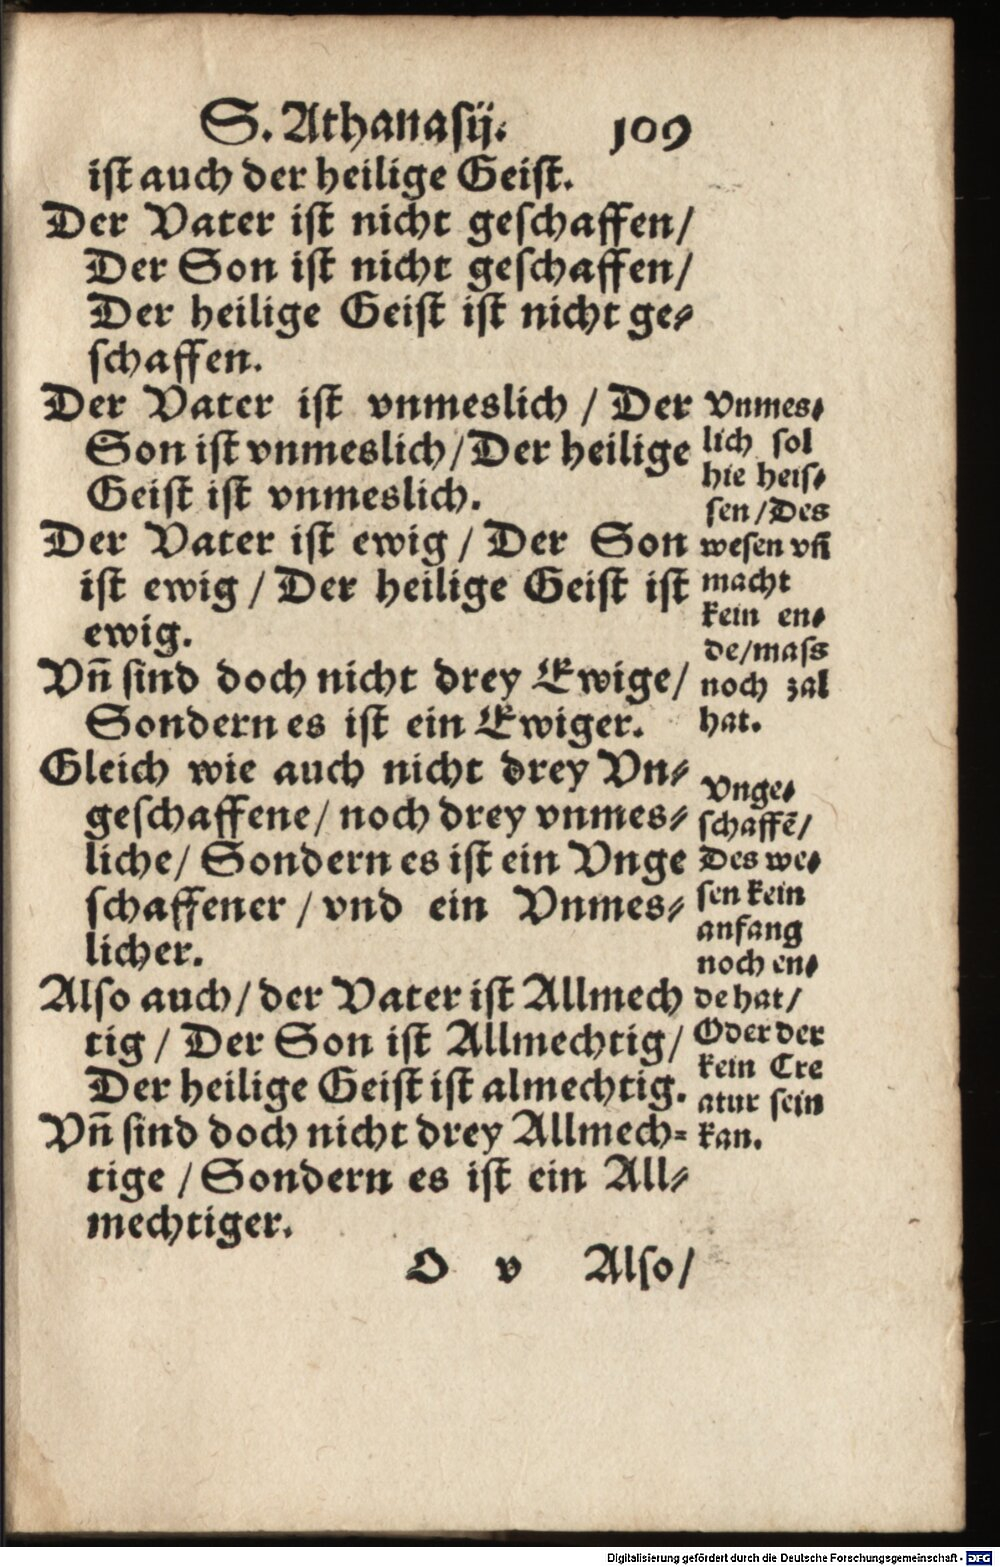 S. Athanasij. 109
ist auch der heilige Geist.
Der Vater ist nicht geschaffen/
Der Son ist nicht geschaffen/
Der heilige Geist ist nicht ge⸗
schaffen.
Der Vater ist vnmeslich / Der
Son ist vnmeslich / Der heilige
Geist ist vnmeslich.
Der Vater ist ewig / Der Son
ist ewig / Der heilige Geist ist
ewig.
Vñ sind doch nicht drey Ewige/
Sondern es ist ein Ewiger.
Gleich wie auch nicht drey Vn⸗
geschaffene/ noch drey vnmes⸗
liche/ Sondern es ist ein Vnge
schaffener / vnd ein Vnmes⸗
licher.
Also auch/ der Vater ist Allmech
tig / Der Son ist Allmechtig/
Der heilige Geist ist almechtig.
Vñ sind doch nicht drey Allmech⸗
tige / Sondern es ist ein All⸗
mechtiger.
O v Also/
Vnmes⸗
lich sol
hie heis⸗
sen / Des
wesen vñ
macht
kein en⸗
de/mass
noch zal
hat.
Vnge⸗
schaffē/
Des we⸗
sen kein
anfang
noch en⸗
de hat/
Oder der
kein Cre
atur sein
kan.
Digitalisierung gefördert durch die Deutsche Forschungsgemeinschaft - DFG